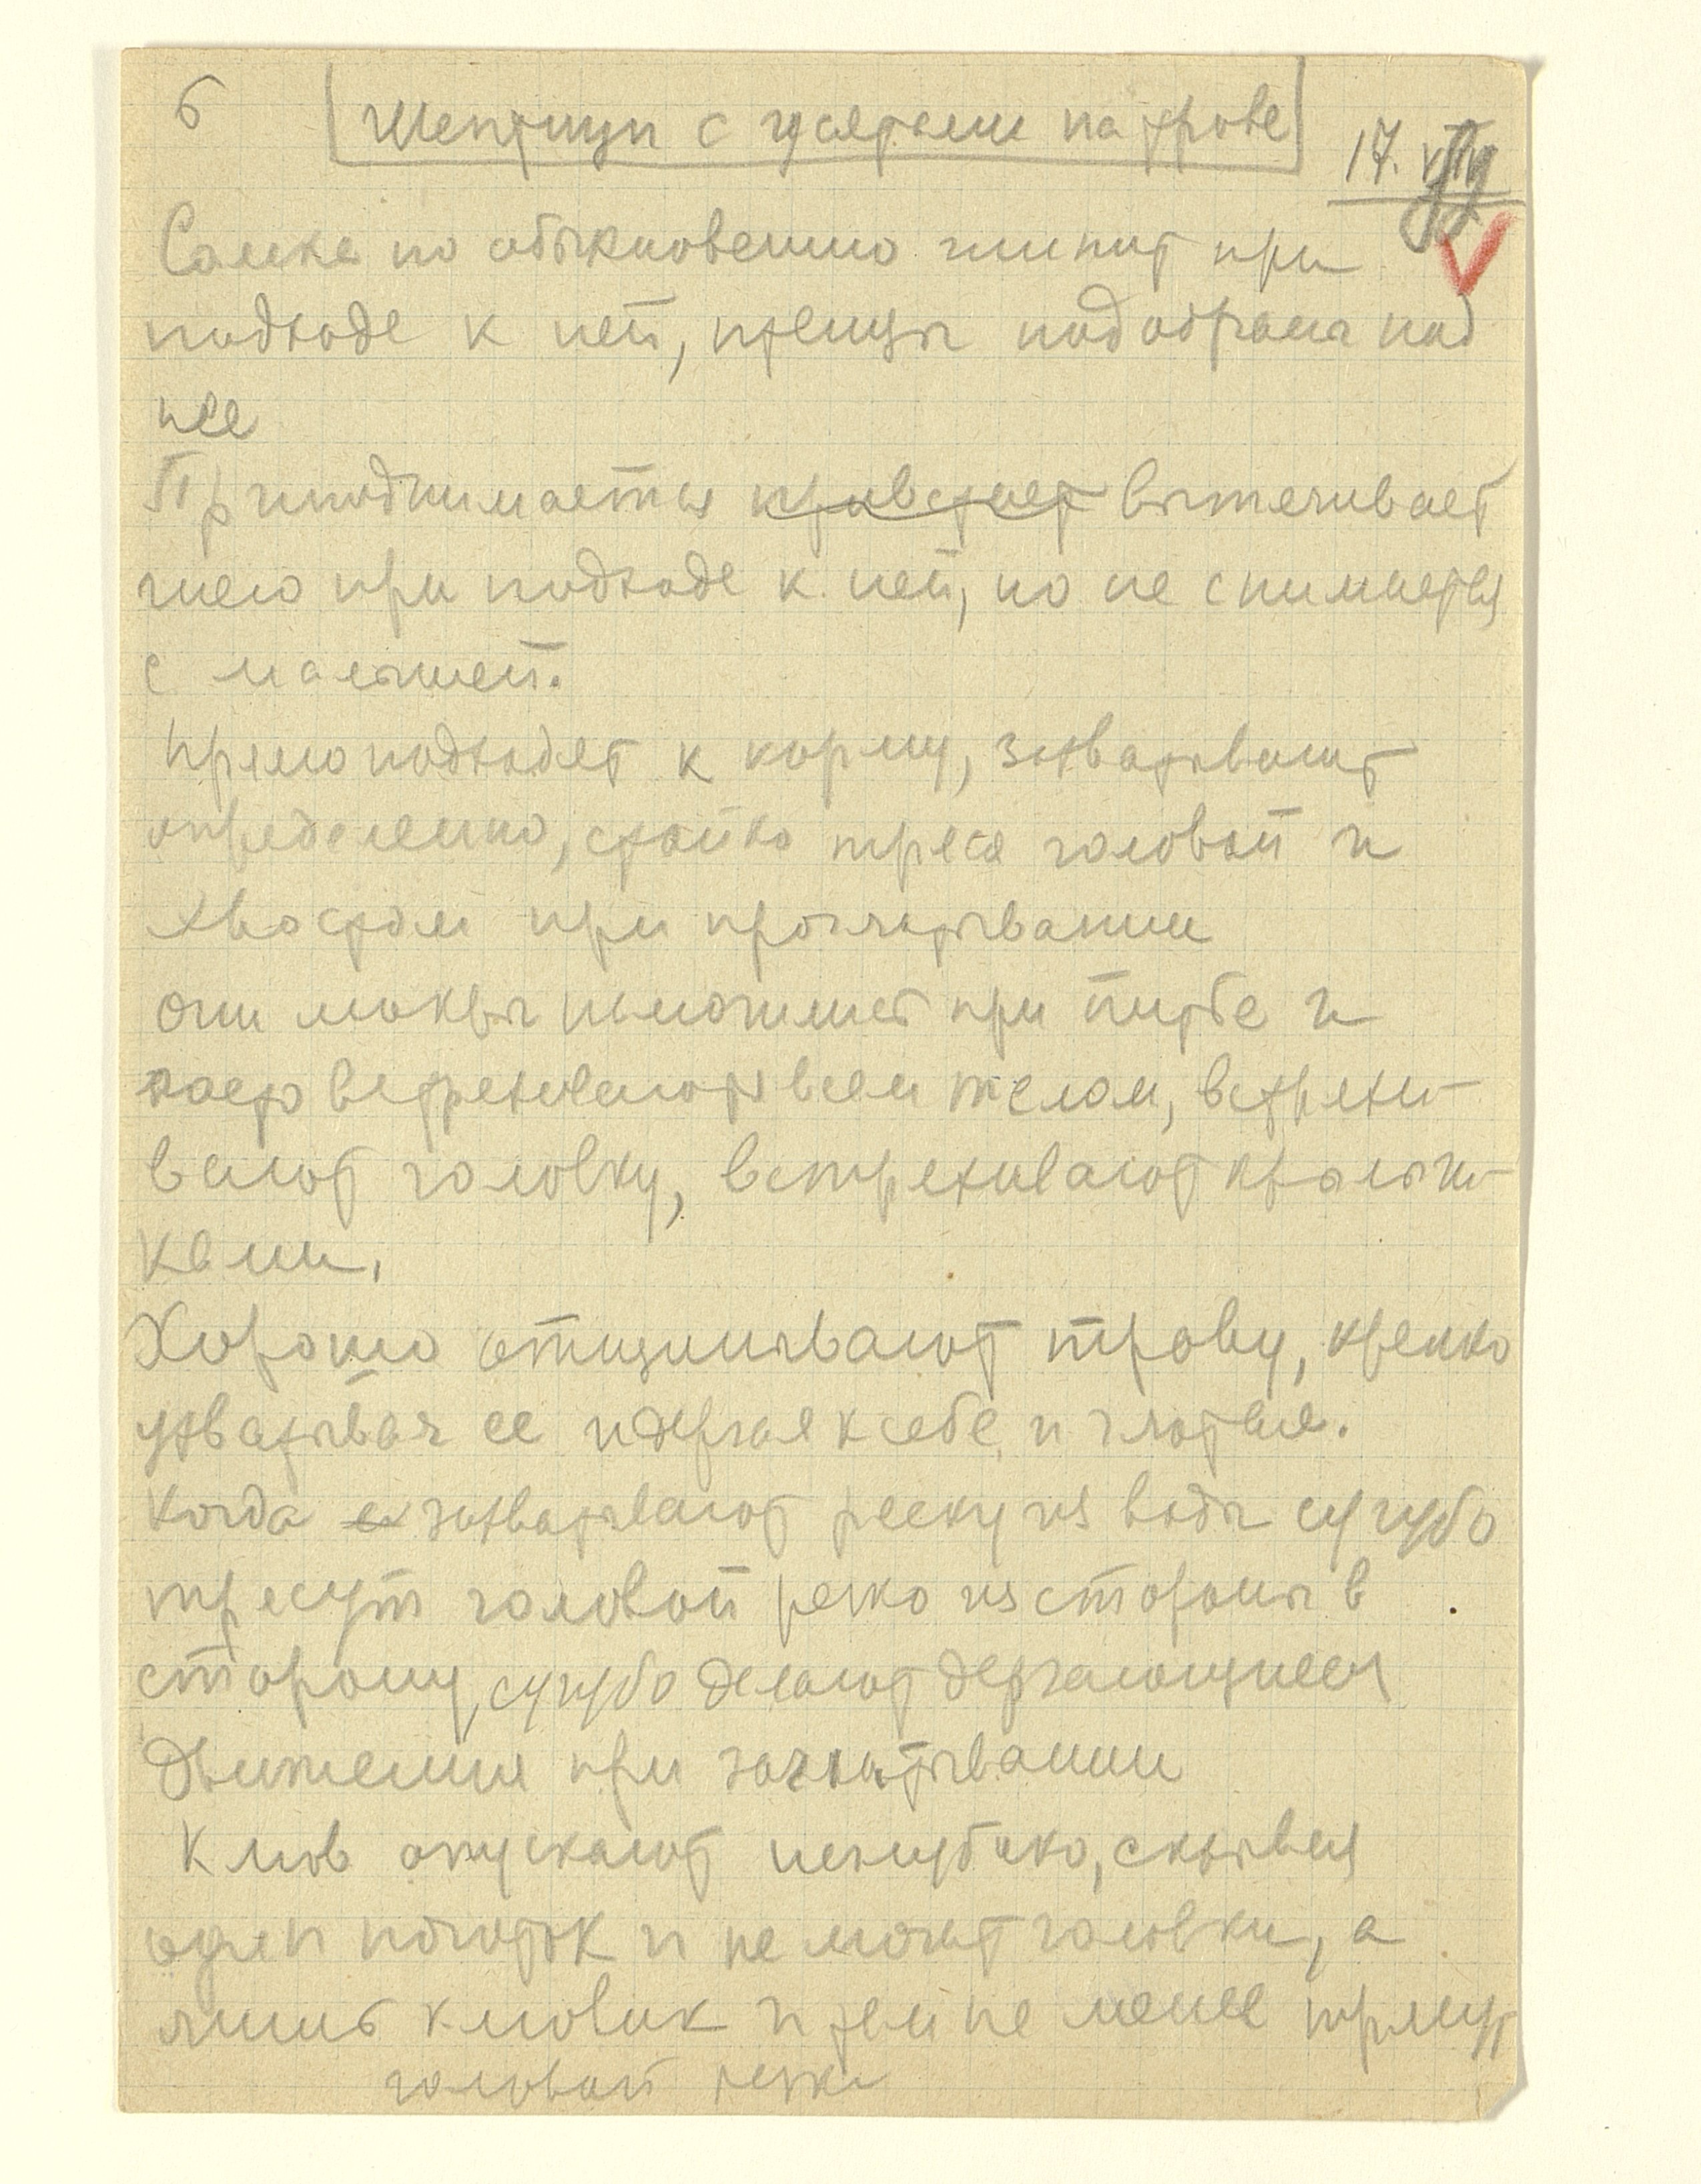 6 Шептуны с утятами на траве
17. VIII
Самка по обыкновению шипит при
подходе к ней, птенцы подобраны под
нее
Приподнимается привстает вытягивает
шею при подходе к ней, но не снимается
с малышей.
прямо подходят к корму, захватывают
определенно, стойко тряся головой и
хвостом при проглатывании
они мокры при питье и
часто встряхиваются всем телом, встряхи-
вают головку, встряхивают крылыш-
ками.
Хорошо отщипывают траву, крепко
ухватывая ее и дергая к себе и глотая.
Когда захватывают ряску из воды сугубо
трясут головой резко из стороны в
сторону, сугубо делают дергающиеся
движения при заглатывании
Клюв опускают неглубоко, скрывая
один ноготок и не мочат головки, а
лишь клювик и тем не менее трясут
головой резко